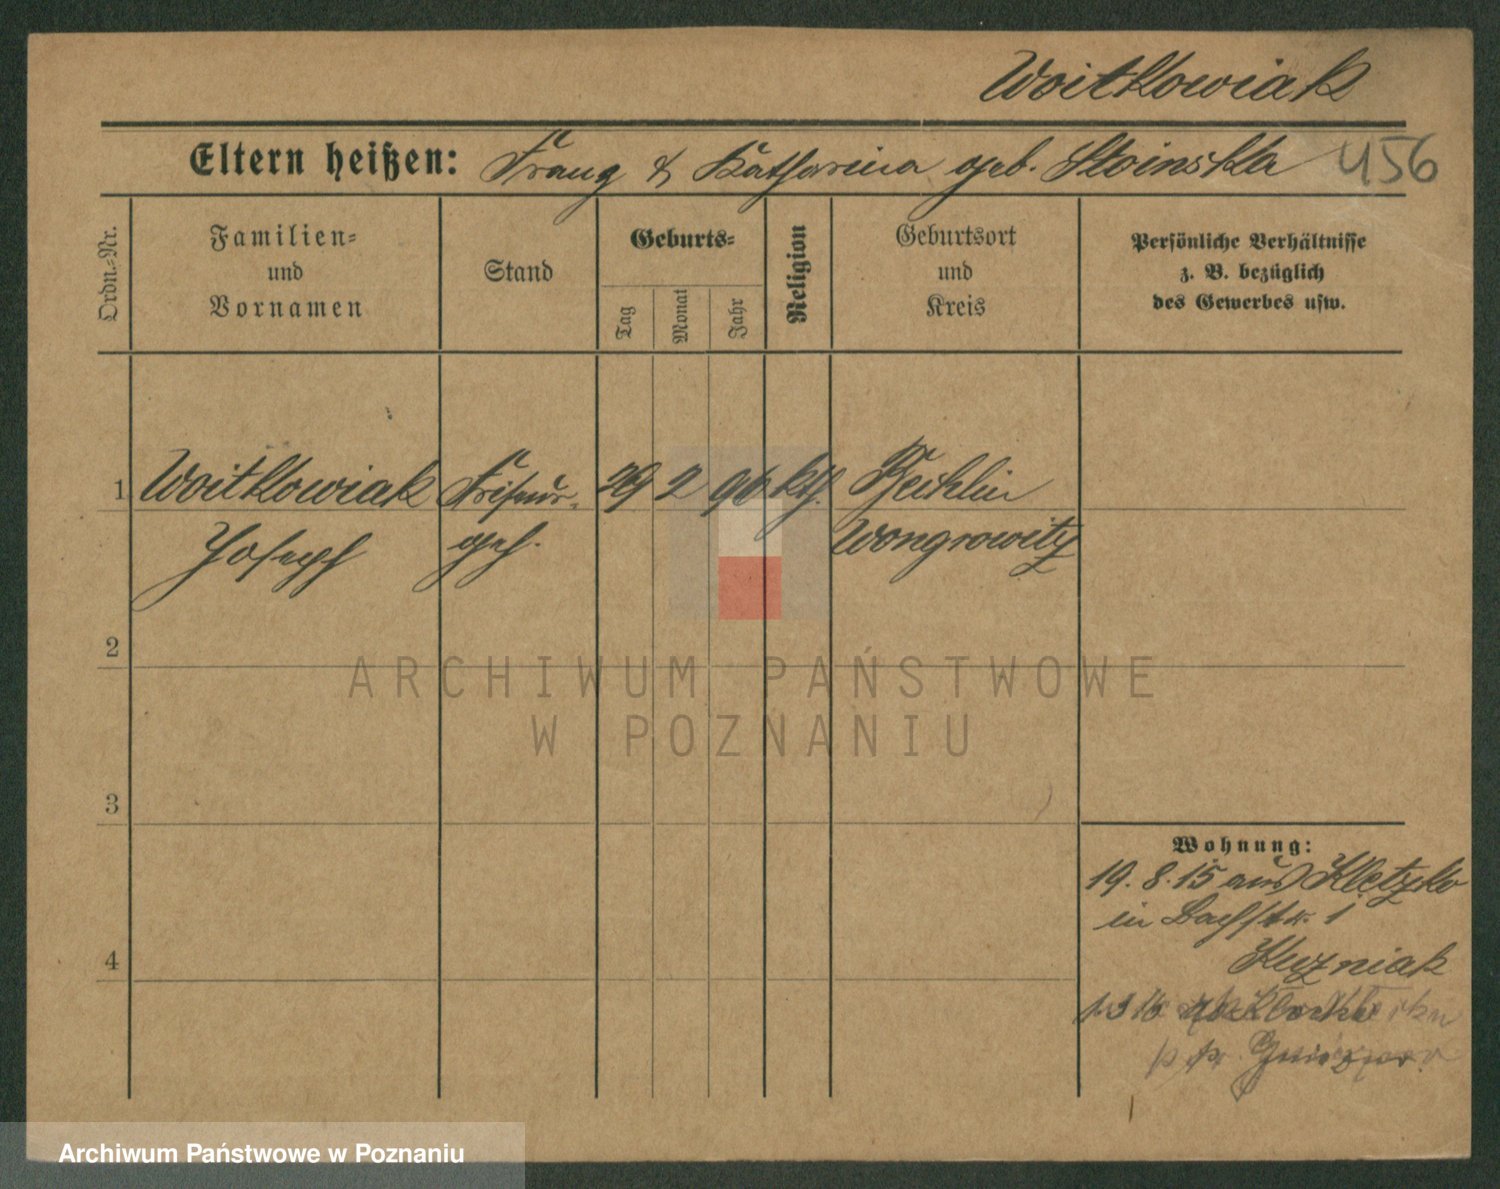 Woitkowiak
Eltern heißen: Franz & Katharina geb. Stoinska 456
Ordn.-Nr.
Familien-
und
Vornamen
Stand
Geburts-
Tag
Monat
Jahr
Religion
Geburtsort
und
Kreis
Persönliche Verhältnisse
z. B. bezüglich
des Gewerbes usw.
1 Woitkowiak Friseur- 29 2 96 kth.
Joseph geh. Wongrowitz
2
3
4
Wohnung:
19. 8. 15 aus Kletzko
in Bachstr. 1
Kuzniak
1. 3 16
ARCHIWUM PAŃSTWOWE
W POZNANIU
Archiwum Państwowe w Poznaniu